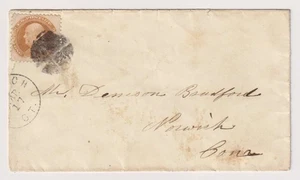 CH
17
CT.
Mr. Denison Bradford
Norwich
Conn